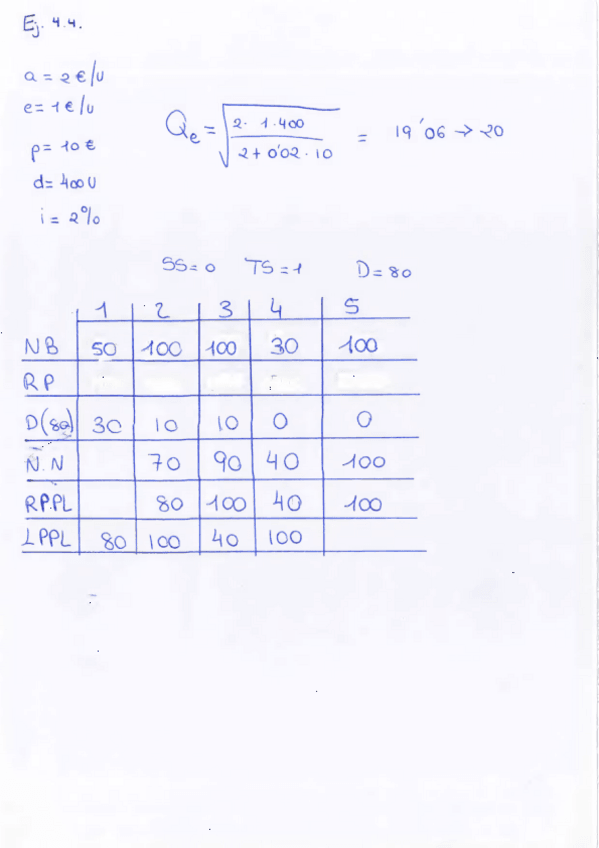 Ej. 4.4.
a = 2 €/u
e = 1 €/u
p = 10 €
d = 400 U
i = 2%
Qe = √ 2 · 1 · 400 / 2 + 0'02 · 10 = 19'06 → 20
SS = 0 TS = 1 D = 80
1 2 3 4 5
NB 50 100 100 30 100
RP
D(80) 30 10 10 0 0
N.N 70 90 40 100
RP.PL 80 100 40 100
LPPL 80 100 40 100